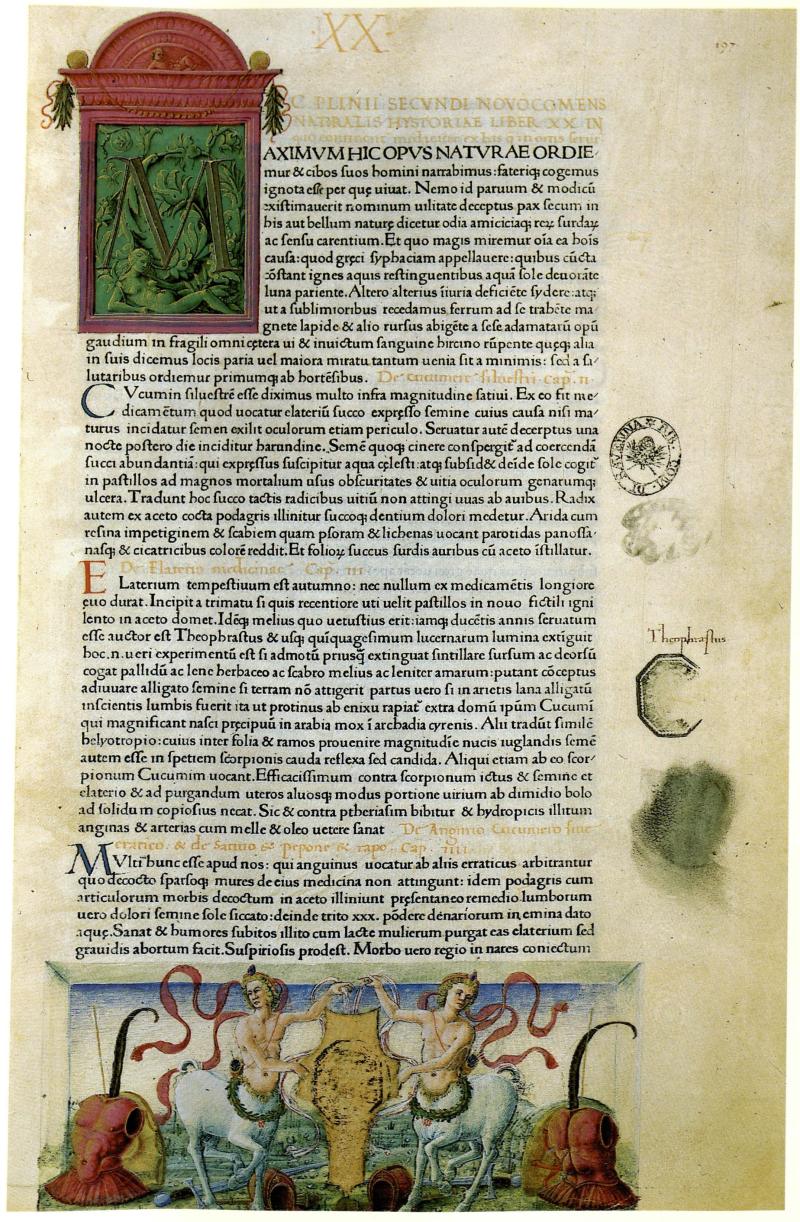 XX
197
C. PLINII SECVNDI NOVOCOMENS
NATVRALIS HYSTORIAE LIBER XX IN
quo continent medicine ex his q in
M
AXIMVM HIC OPVS NATVRAE ORDIE-
mur & cibos suos homini narrabimus: fateriq; cogemus
ignota esse per quę uiuat. Nemo id paruum & modicū
existimauerit nominum uilitate deceptus pax secum in
his aut bellum naturę dicetur odia amiciciaq; reꝝ surdaꝝ
ac sensu carentium. Et quo magis miremur oīa ea hoīs
causa: quod gręci syphaciam appellauere: quibus cūcta
cōstant ignes aquis restinguentibus aquā sole deuorāte
luna pariente. Altero alterius iīuria deficiēte sydere: atq;
ut a sublimioribus recedamus ferrum ad se trahēte ma
gnete lapide & alio rursus abigēte a sese adamātarū opū
gaudium in fragili omni cętera ui & inuictum sanguine hircino rūpente quęq; alia
in suis dicemus locis paria uel maiora miratu tantum uenia sit a minimis: sed a sa-
lutaribus ordiemur primumq; ab hortēsibus. De cucumere siluestri Cap. ii
CVcumin siluestrē esse diximus multo infra magnitudine satiui. Ex eo fit me-
dicamētum quod uocatur elateriū succo expresso semine cuius causa nisi ma-
turus incidatur semen exilit oculorum etiam periculo. Seruatur autē decerptus una
nocte postero die inciditur harundine. Semē quoq; cinere conspergit ad coercendā
succi abundantiā: qui expressus suscipitur aqua cęlesti: atq; subsid& deīde sole cogit
in pastillos ad magnos mortalium usus obscuritates & uitia oculorum genarumq;
ulcera. Tradunt hoc succo tactis radicibus uitiū non attingi uuas ab auibus. Radix
autem ex aceto cocta podagris illinitur succoq; dentium dolori medetur. Arida cum
resina impetiginem & scabiem quam psoram & lichenas uocant parotidas panossa-
nasq; & cicatricibus colorē reddit. Et folioꝝ succus surdis auribus cū aceto īstillatur.
De Elaterio medicinae Cap. III
ELaterium tempestiuum est autumno: nec nullum ex medicamētis longiore
ęuo durat. Incipit a trimatu si quis recentiore uti uelit pastillos in nouo fictili igni
lento in aceto domet. Idēq; melius quo uetustius erit: iamq; ducētis annis seruatum
esse auctor est Theophrastus & usq; quīquagesimum lucernarum lumina extiguit
hoc.n.ueri experimentū est si admotū priusq̄ extinguat sintillare sursum ac deorsū
cogat pallidū ac lene herbaceo ac scabro melius ac leniter amarum: putant cōceptus
adiuuare alligato semine si terram nō attigerit partus uero si in arietis lana alligatū
inscientis lumbis fuerit ita ut protinus ab enixu rapiat extra domū ipūm Cucumī
qui magnificant nasci pręcipuū in arabia mox ī archadia cyrenis. Alii tradūt similē
helyotropio: cuius inter folia & ramos prouenire magnitudīe nucis iuglandis semē
autem esse in spetiem scorpionis cauda reflexa sed candida. Aliqui etiam ab eo scor-
pionum Cucumim uocant. Efficacissimum contra scorpionum ictus & semine et
elaterio & ad purgandum uteros aluosq; modus portione uirium ab dimidio bolo
ad solidum copiosius necat. Sic & contra ptheriasim bibitur & hydropicis illitum
anginas & arterias cum melle & oleo uetere sanat De Anguino Cucumero siue
erratico. & de Satiuo & pepone & rapo. Cap. IIII
MVlti hunc esse apud nos: qui anguinus uocatur ab aliis erraticus arbitrantur
quo decocto sparsoq; mures de eius medicina non attingunt: idem podagris cum
articulorum morbis decoctum in aceto illiniunt pręsentaneo remedio lumborum
uero dolori semine sole siccato: deinde trito xxx. pōdere denariorum in emina dato
aquę. Sanat & humores subitos illito cum lacte mulierum purgat eas elaterium sed
grauidis abortum facit. Suspiriosis prodest. Morbo uero regio in nares coniectum
BIB. COM. DI RAVENNA
Theophrastus